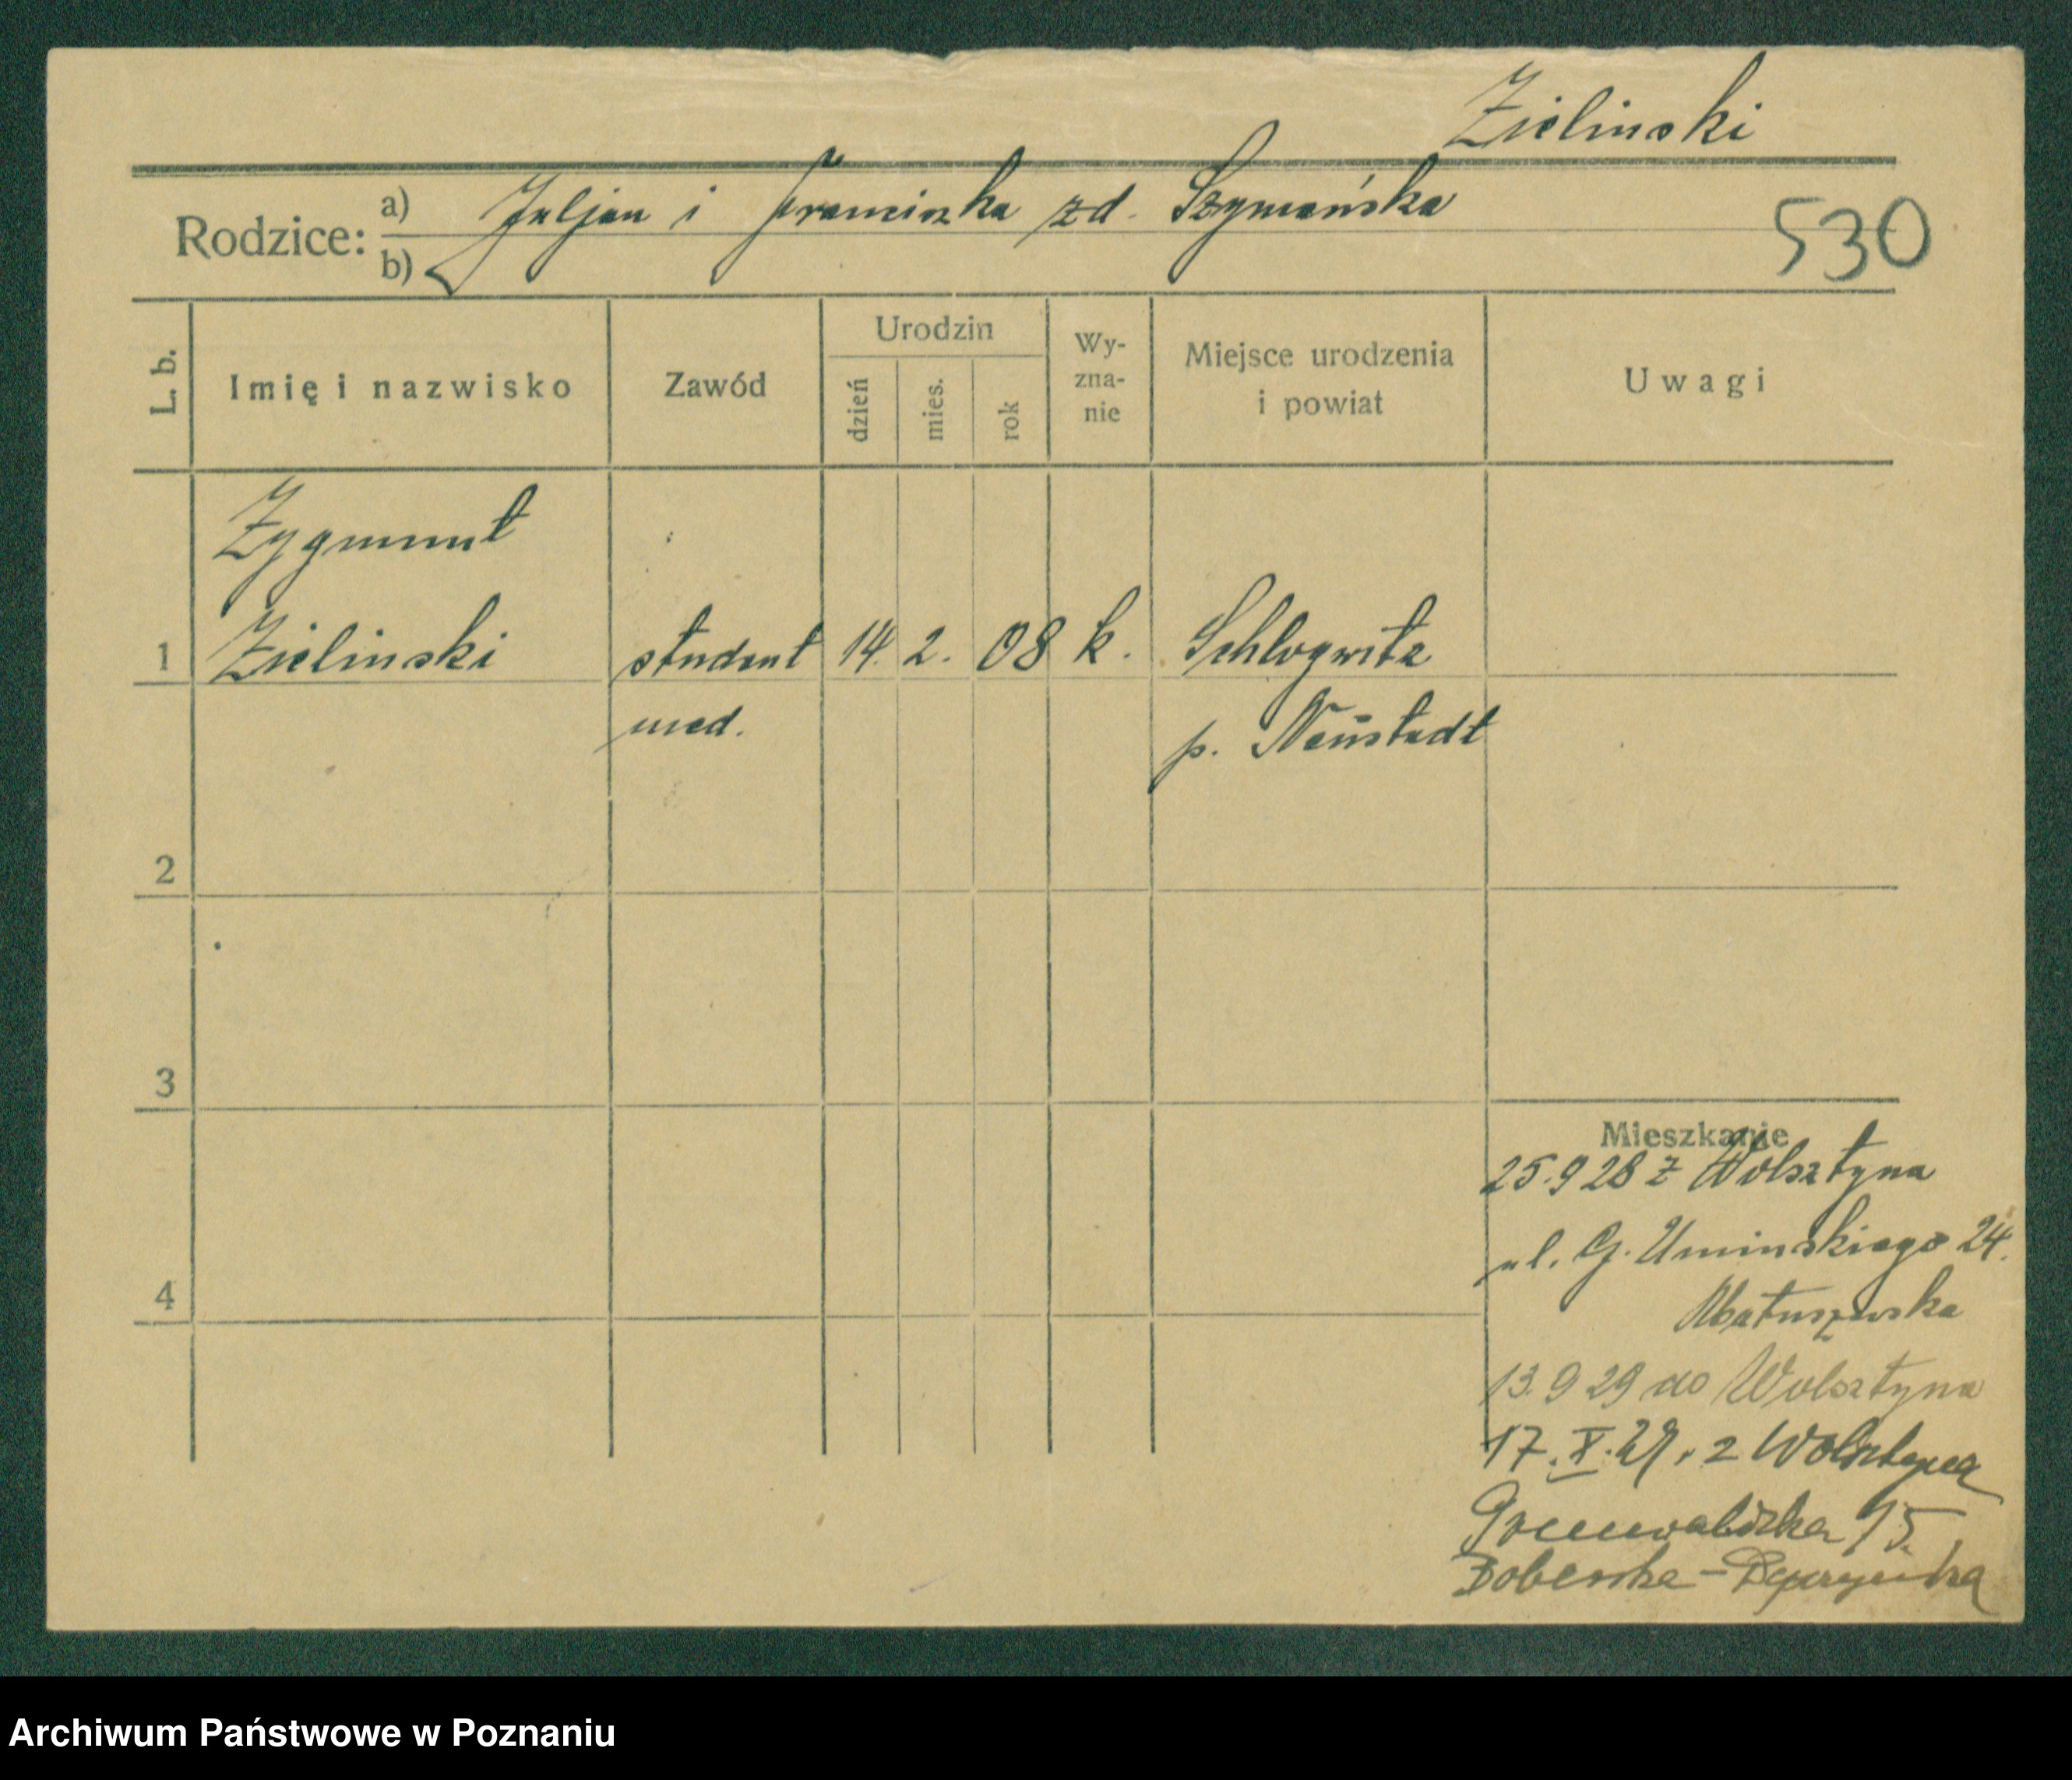 Zielinski
Rodzice: a) Juljan i Franciszka zd. Szymańska
b)
530
L. b.
Imię i nazwisko
Zawód
Urodzin
dzień
mies.
rok
Wy-
zna-
nie
Miejsce urodzenia
i powiat
Uwagi
Zygmunt
1 Zielinski student 14. 2. 08 k. Schlogwitz
med. p. Neustadt
2
3
4
Mieszkanie
25.9 28 z Wolsztyna
ul. G. Uminskiego 24.
Matuszewska
13.9 29 do Wolsztyna
17. X. 29. z Wolsztyna
Grunwaldzka 15.
Archiwum Państwowe w Poznaniu